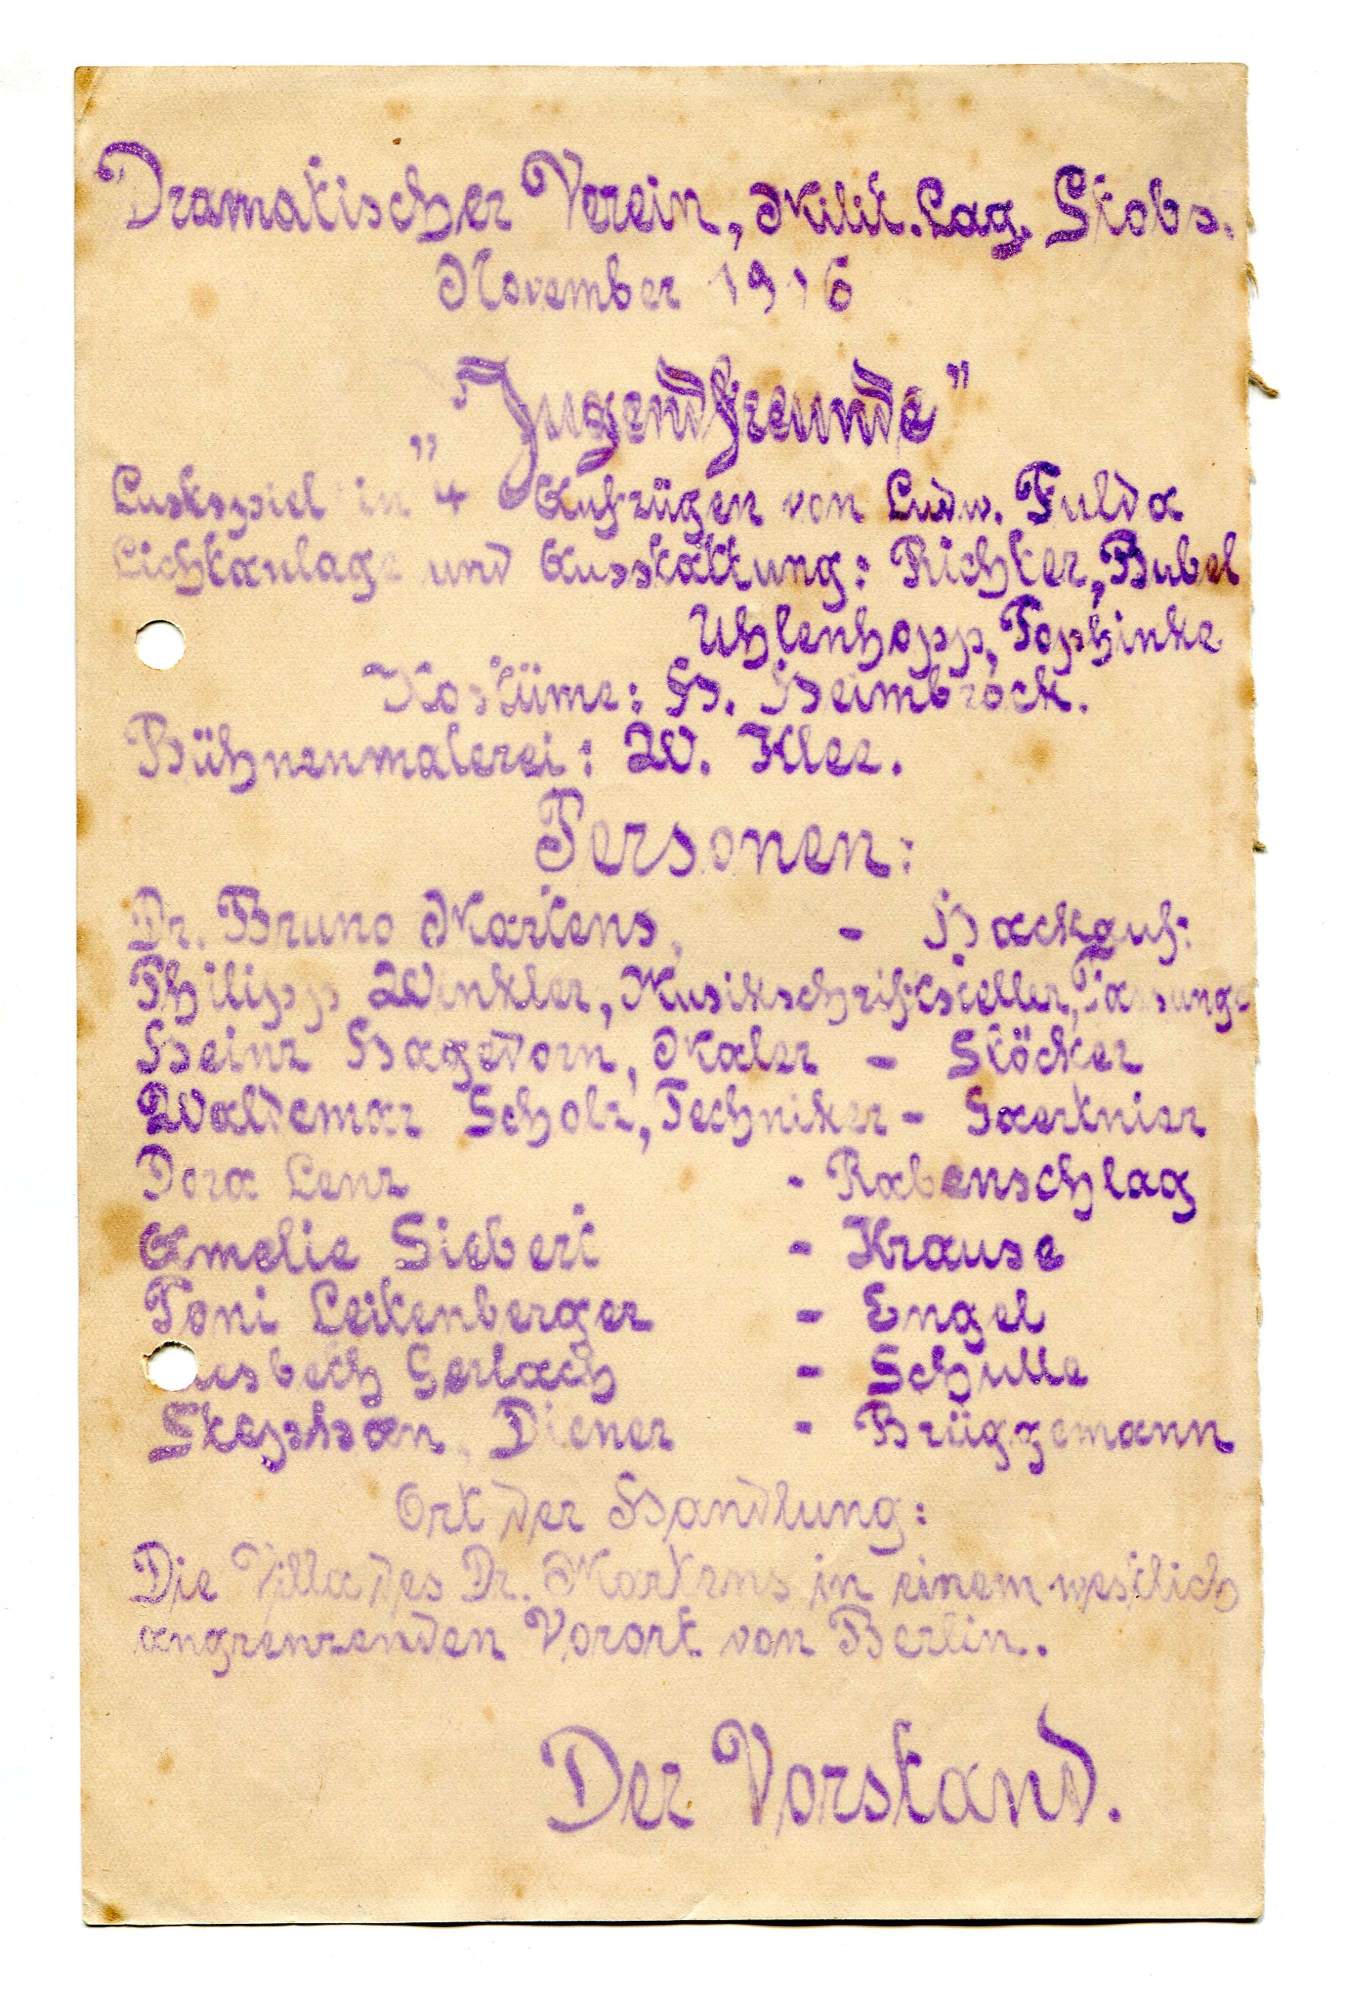 Dramatischer Verein, Milit. Lag. Stobs.
November 1916
„Jugendfreunde”
Lustspiel in 4 Aufzügen von Ludw. Fulda
Lichtanlage und Ausstattung: Richter, Bubel
Uhlenhopp, Tophinke
Kostüme: H. Heimbrock.
Bühnenmalerei: W. Klee.
Personen:
Dr. Bruno Martens, - Hackauf:
Philipp Winkler, Musikschriftsteller,
Heinz Hagedorn, Maler - Stöcker
Waldemar Scholz, Techniker - Gaertnier
Dora Lenz - Rabenschlag
Amelie Siebert - Krause
Toni Leitenberger - Engel
Gerlach - Schulle
Stephan, Diener - Brüggemann
Ort der Handlung:
Die Villa des Dr. Martens in einem westlich
angrenzenden Vorort von Berlin.
Der Vorstand.